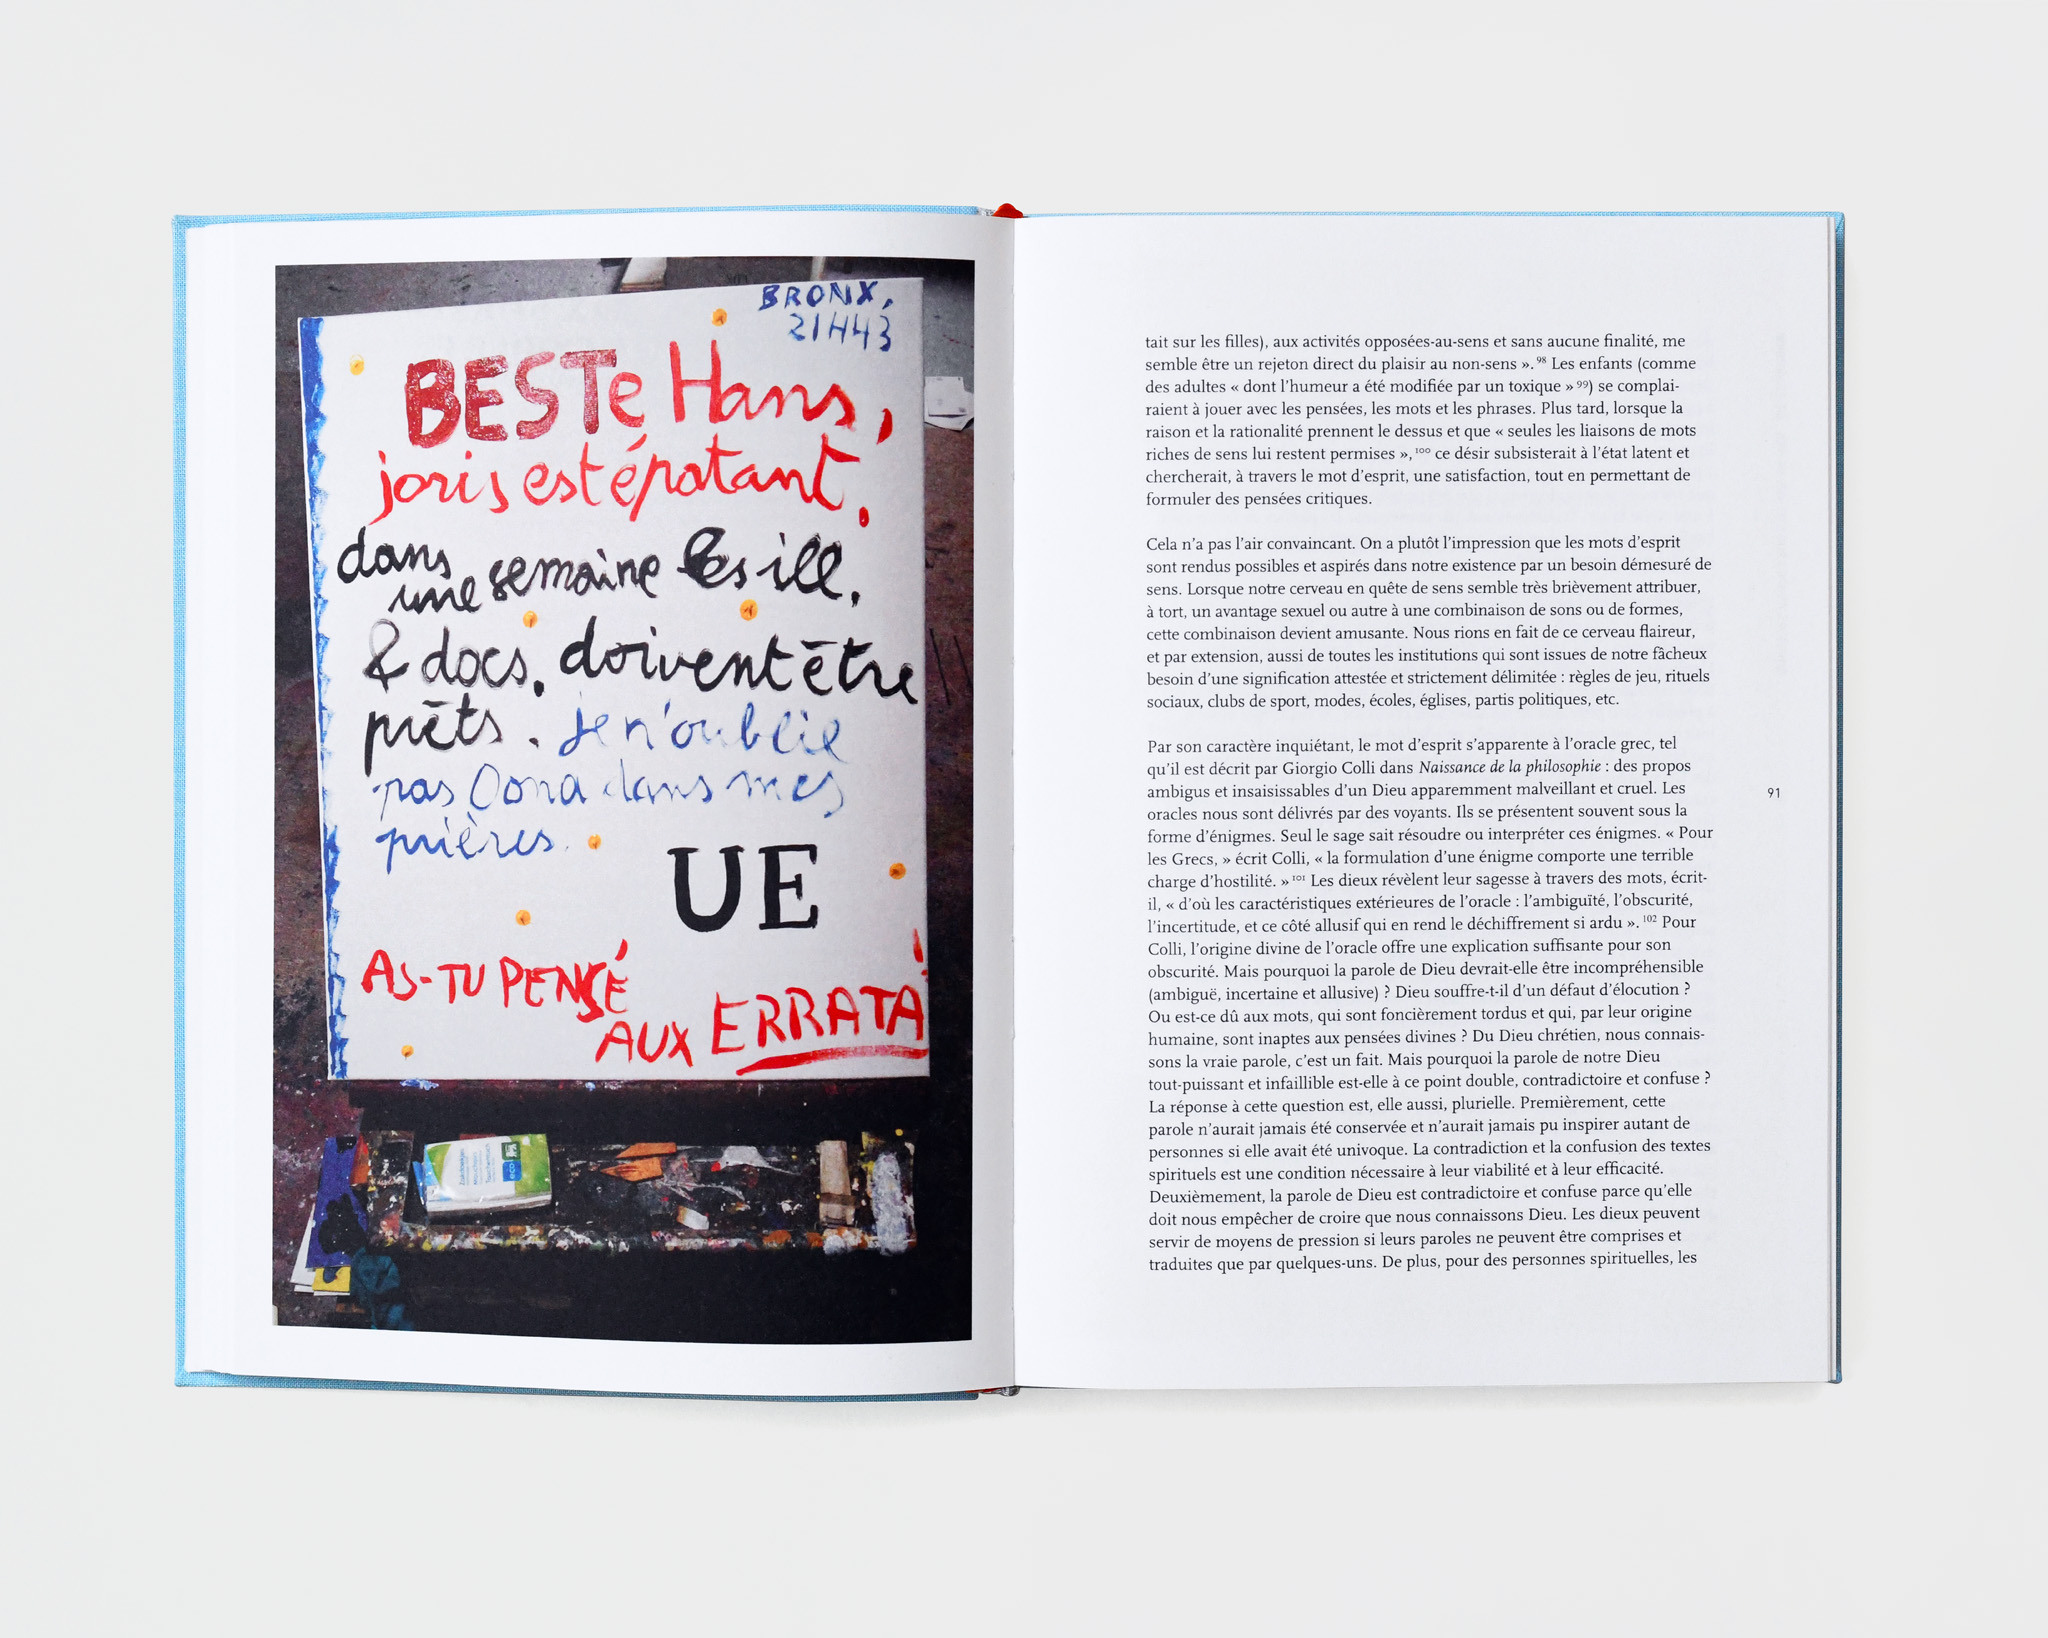 BRONX,
21H43
BESTe Hans,
joris est épatant.
dans
une semaine les ill.
& docs. doivent être
prêts. je n'oublie
pas Oona dans mes
prières.
UE
AS-TU PENSÉ
AUX ERRATA!
eco
tait sur les filles), aux activités opposées-au-sens et sans aucune finalité, me
semble être un rejeton direct du plaisir au non-sens ».⁹⁸ Les enfants (comme
des adultes « dont l’humeur a été modifiée par un toxique »⁹⁹) se complai-
raient à jouer avec les pensées, les mots et les phrases. Plus tard, lorsque la
raison et la rationalité prennent le dessus et que « seules les liaisons de mots
riches de sens lui restent permises »,¹⁰⁰ ce désir subsisterait à l’état latent et
chercherait, à travers le mot d’esprit, une satisfaction, tout en permettant de
formuler des pensées critiques.
Cela n’a pas l’air convaincant. On a plutôt l’impression que les mots d’esprit
sont rendus possibles et aspirés dans notre existence par un besoin démesuré de
sens. Lorsque notre cerveau en quête de sens semble très brièvement attribuer,
à tort, un avantage sexuel ou autre à une combinaison de sons ou de formes,
cette combinaison devient amusante. Nous rions en fait de ce cerveau flaireur,
et par extension, aussi de toutes les institutions qui sont issues de notre fâcheux
besoin d’une signification attestée et strictement délimitée : règles de jeu, rituels
sociaux, clubs de sport, modes, écoles, églises, partis politiques, etc.
Par son caractère inquiétant, le mot d’esprit s’apparente à l’oracle grec, tel
qu’il est décrit par Giorgio Colli dans Naissance de la philosophie : des propos
ambigus et insaisissables d’un Dieu apparemment malveillant et cruel. Les
oracles nous sont délivrés par des voyants. Ils se présentent souvent sous la
forme d’énigmes. Seul le sage sait résoudre ou interpréter ces énigmes. « Pour
les Grecs, » écrit Colli, « la formulation d’une énigme comporte une terrible
charge d’hostilité. »¹⁰¹ Les dieux révèlent leur sagesse à travers des mots, écrit-
il, « d’où les caractéristiques extérieures de l’oracle : l’ambiguïté, l’obscurité,
l’incertitude, et ce côté allusif qui en rend le déchiffrement si ardu ».¹⁰² Pour
Colli, l’origine divine de l’oracle offre une explication suffisante pour son
obscurité. Mais pourquoi la parole de Dieu devrait-elle être incompréhensible
(ambiguë, incertaine et allusive) ? Dieu souffre-t-il d’un défaut d’élocution ?
Ou est-ce dû aux mots, qui sont foncièrement tordus et qui, par leur origine
humaine, sont inaptes aux pensées divines ? Du Dieu chrétien, nous connais-
sons la vraie parole, c’est un fait. Mais pourquoi la parole de notre Dieu
tout-puissant et infaillible est-elle à ce point double, contradictoire et confuse ?
La réponse à cette question est, elle aussi, plurielle. Premièrement, cette
parole n’aurait jamais été conservée et n’aurait jamais pu inspirer autant de
personnes si elle avait été univoque. La contradiction et la confusion des textes
spirituels est une condition nécessaire à leur viabilité et à leur efficacité.
Deuxièmement, la parole de Dieu est contradictoire et confuse parce qu’elle
doit nous empêcher de croire que nous connaissons Dieu. Les dieux peuvent
servir de moyens de pression si leurs paroles ne peuvent être comprises et
traduites que par quelques-uns. De plus, pour des personnes spirituelles, les
91